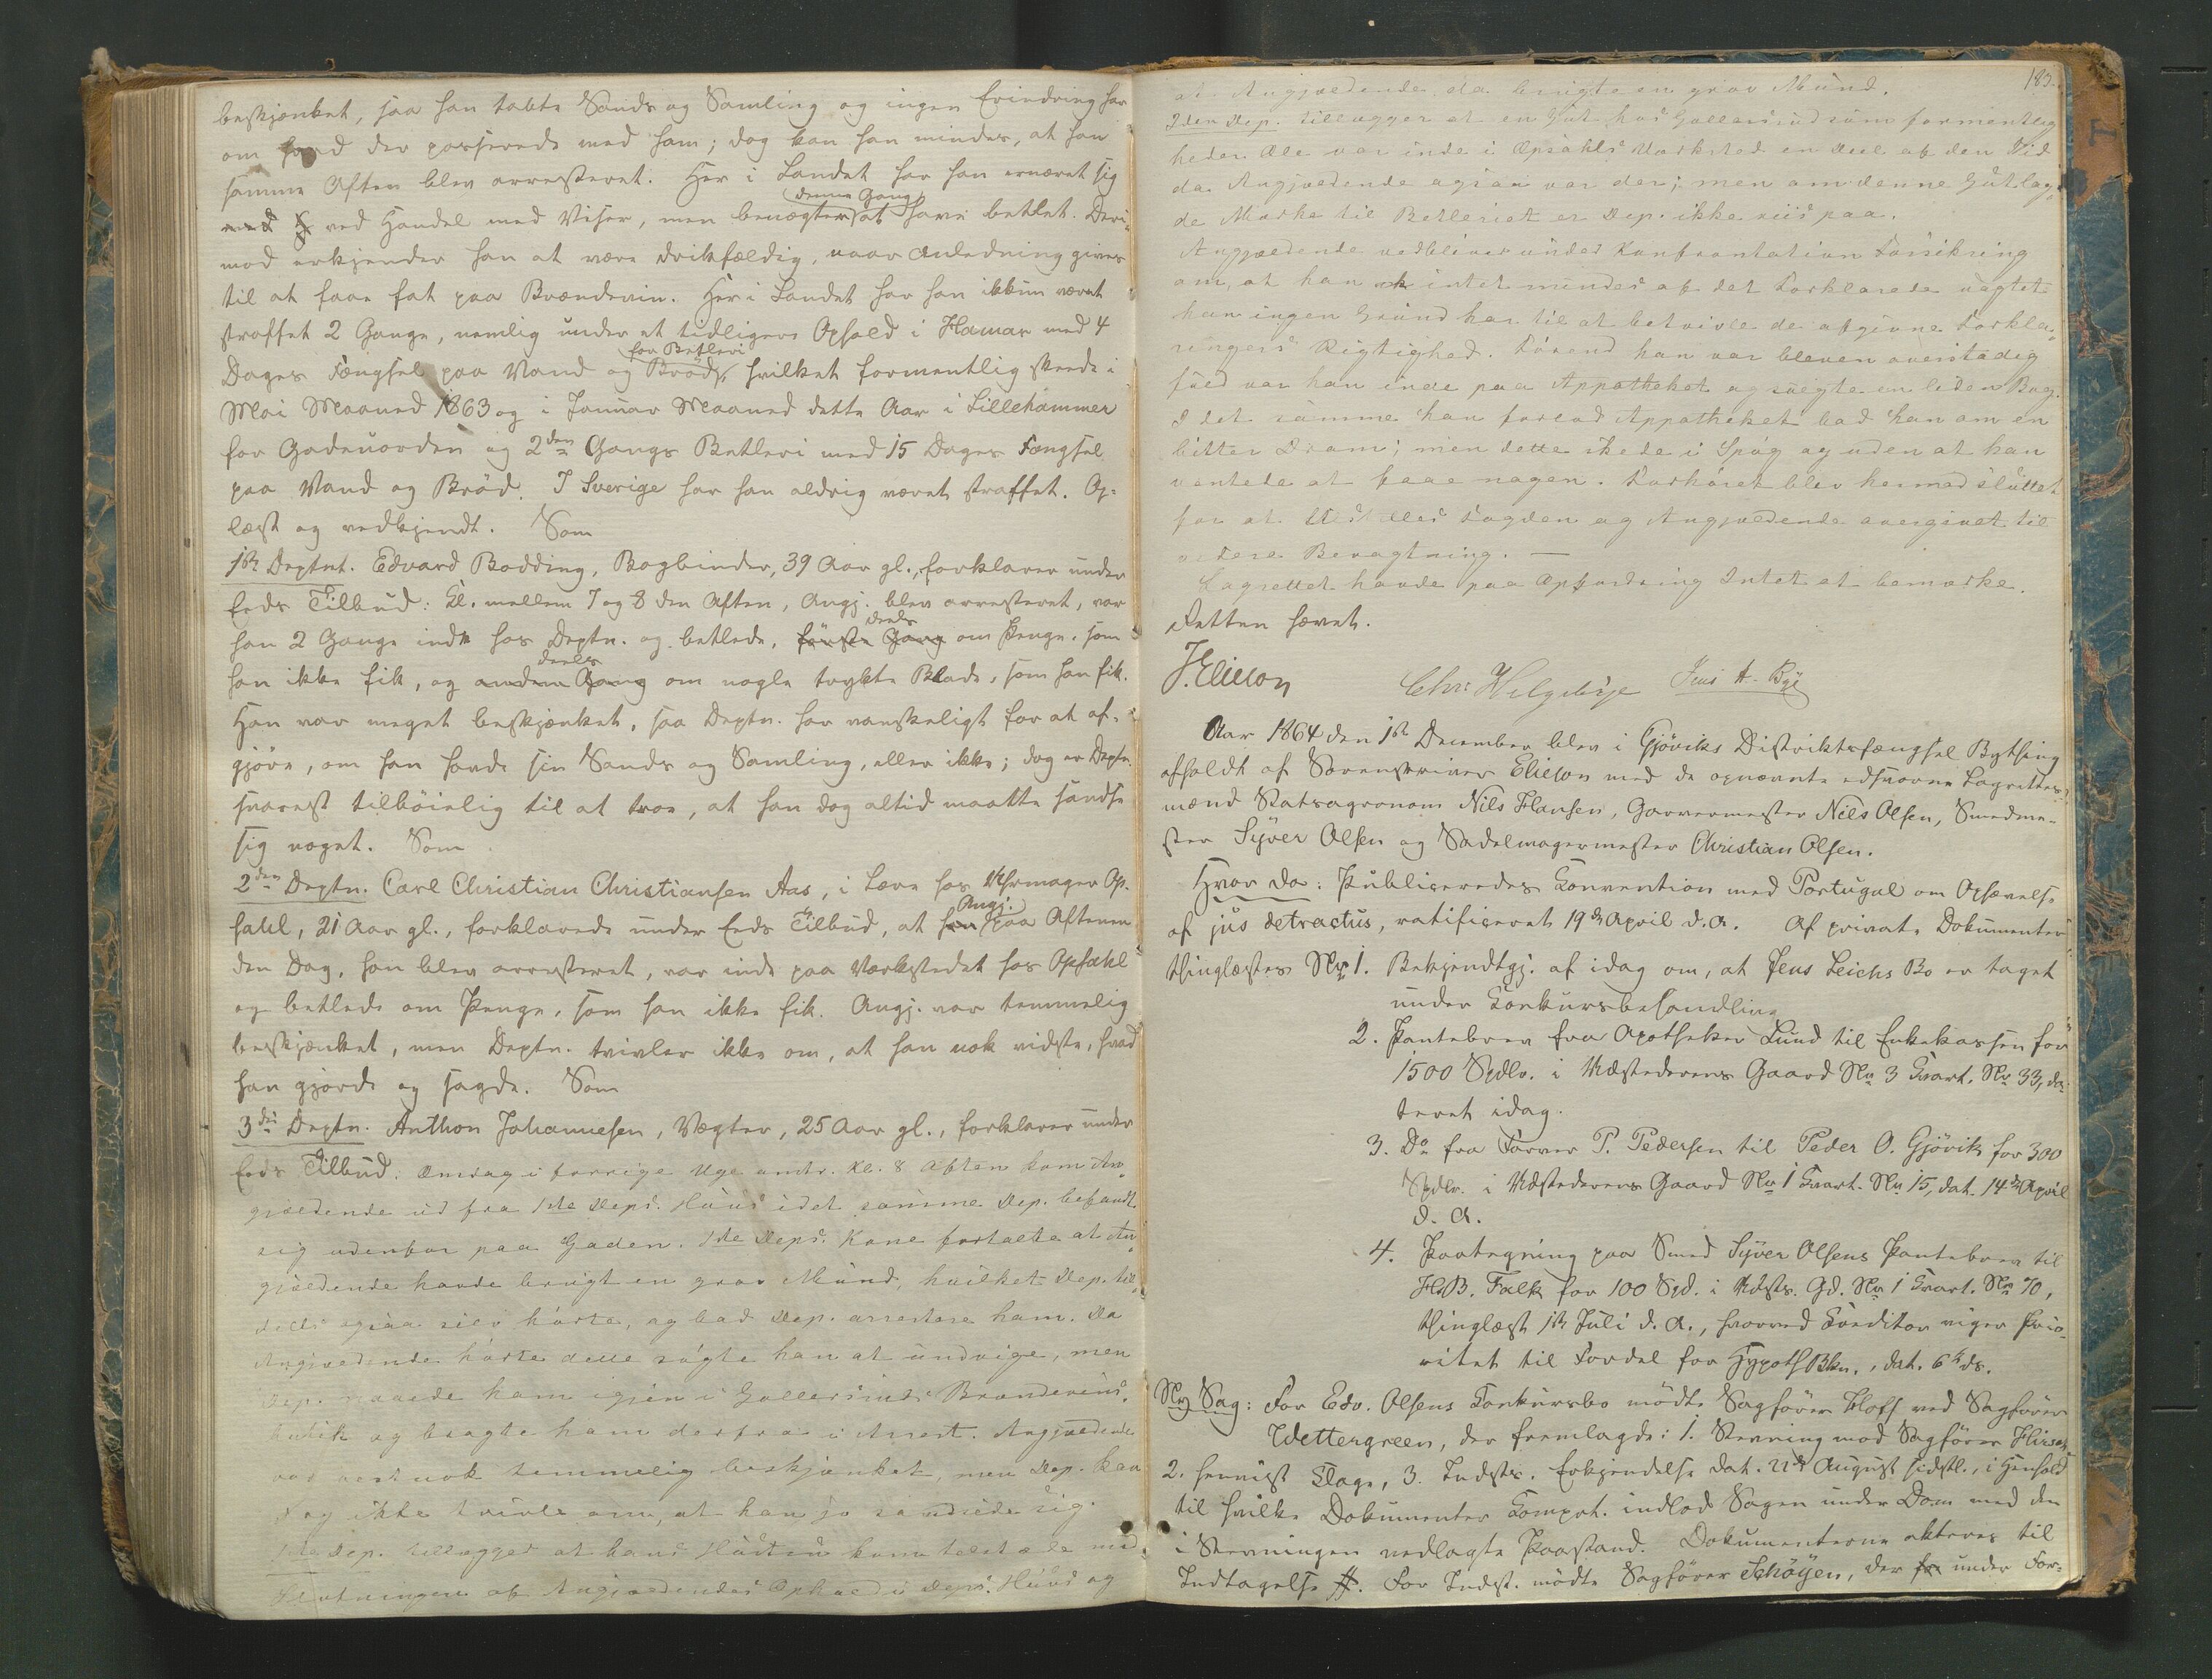 beskjænket, saa han tabte Sands og Samling og ingen Erindring har
om hvad der passerede med ham; dog kan han mindes, at han
samme Aften blev arresteret. Her i Landet har han ernæret sig
denne Gang
ved Handel med Viser, men benægter at have betlet. Deri-
mod erkjender han at være drikfældig, naar Anledning gives
til at faae fat paa Brændeviin. Her i Landet har han ikkun været
straffet 2 Gange, nemlig under et tidligere Ophold i Hamar med 4
for Betleri
Dages Fængsel paa Vand og Brød, hvilket formentlig skede i
Mai Maaned 1863 og i Januar Maaned dette Aar i Lillehammer
for Gadeuorden og 2den Gangs Betleri med 15 Dages Fængsel
paa Vand og Brød. I Sverige har han aldrig været straffet. Op-
læst og vedkjendt. Som
1ste Deptnt. Edvard Bodding, Bogbinder, 39 Aar gl., forklarer under
Eeds Tilbud: Kl. mellem 7 og 8 den Aften, Angj. blev arresteret, var
deels
han 2 Gange inde hos Deptn. og betlede, første Gang om Penge, som
deels
han ikke fik, og anden Gang om nogle trykte Blade, som han fik.
Han var meget beskjænket, saa Deptn. har vanskeligt for at af-
gjøre, om han havde sin Sands og Samling, eller ikke; dog er Deptn.
snarest tilbøielig til at troe, at han dog altid maatte sandse
sig noget. Som
2den Deptn. Carl Christian Christiansen Aas, i Lære hos Uhrmager Op-
Angj.
sahl, 21 Aar gl., forklarede under Eeds Tilbud, at han paa Aftenen
den Dag, han blev arresteret, var inde paa Værkstedet hos Opsahl
og betlede om Penge, som han ikke fik. Angj. var temmelig
beskjænket, men Deptn. tvivler ikke om, at han nok vidste, hvad
han gjorde og sagde. Som
3die Deptn. Anthon Johannesen, Vægter, 25 Aar gl., forklarer under
Eeds Tilbud: Onsdag i forrige Uge omtr. Kl. 8 Aften kom An-
gjældende ud fra 1ste Deps. Huus idet samme Dep. befandt
sig udenfor paa Gaden. 1ste Deps. Kone fortalte at An-
gjældende havde brugt en grov Mund, hvilket Dep. til-
deels ogsaa selv hørte, og bad Dep. arrestere ham. Da
Angjældende hørte dette søgte han at undvige, men
Dep. naaede ham igjen i Gullersruds Brændeviins-
butik og bragte ham derfra i Arrest. Angjældende
var vistnok temmelig beskjænket, men Dep. kan
dog ikke tvivle om, at han jo sandsede sig.
1ste Dep. tillægger at hans Hustru kom tilstæde ved
Slutningen af Angjældendes Ophold i Deps. Huus og
183.
at Angjældende da brugte en grov Mund.
2den Dep. tillægger at en Gut hos Gullersrud som formentlig
heder Ole var inde i Opsahls Værksted en Deel af den Tid
da Angjældende ogsaa var der; men om denne Gut lag-
de Mærke til Betleriet er Dep. ikke viis paa.
Angjældende vedbliver under Konfrontation Forsikring
om, at han intet mindes af det Forklarede uagtet
han ingen Grund har til at betvivle de afgivne Forkla-
ringers Rigtighed. Førend han var bleven overstadig
fuld var han inde paa Appotheket og solgte en liden Bog.
I det samme han forlod Appotheket bad han om en
bitter Dram; men dette skede i Spøg og uden at han
ventede at faae nogen. Forhøret blev hermed sluttet
for at tilstilles Fogden og Angjældende overgivet til
videre Bevogtning. —
Lagrettet havde paa Opfordring Intet at bemærke.
Retten hævet.
J. Elieson Chr: Helgebye Jens A. Bye
Aar 1864 den 1ste December blev i Gjøviks Distriktsfængsel Bything
afholdt af Sorenskriver Elieson med de opnævnte edsvorne Lagrettes-
mænd Statsagronom Nils Hansen, Garvermester Nils Olsen, Smedme-
ster Syver Olsen og Sadelmagermester Christian Olsen.
Hvor da: Publiceredes Konvention med Portugal om Ophævelse
af jus detractus, ratificeret 19de April d.A. Af private Dokumenter
thinglæstes No 1. Bekjendtgj. af idag om, at Jens Leichs Bo er taget
under Konkursbehandling
2. Pantebrev fra Apotheker Lund til Enkekassen for
1500 Spdlr. i Udstederens Gaard No 3 Kvart. No 33, da-
teret idag.
3. Do fra Farver P. Pedersen til Peder O. Gjøvik for 300
Spdlr. i Udstederens Gaard No 1 Kvart. No 15, dat. 14de April
d. A.
4. Paategning paa Smed Syver Olsens Pantebrev til
H.B. Falk for 100 Spd. i Udsts. Gd. No 1 Kvart. No 70,
thinglæst 1ste Juli d. A., hvorved Kreditor viger Prio-
ritet til Fordel for HypothBkn., dat. 6te ds.
Ny Sag: For Edv. Olsens Konkursbo mødte Sagfører Hoff ved Sagfører
Wettergreen, der fremlagde: 1. Stevning mod Sagfører
2. henvist Klage, 3. Indsts. Erkjendelse dat. 22de August sidstl., i Henhold
til hvilke Dokumenter Kompt. indlod Sagen under Dom med den
i Stevningen nedlagte Paastand. Dokumenterne akteres til
Indtagelse #. For Indst. mødte Sagfører Schøyen, der for under For-